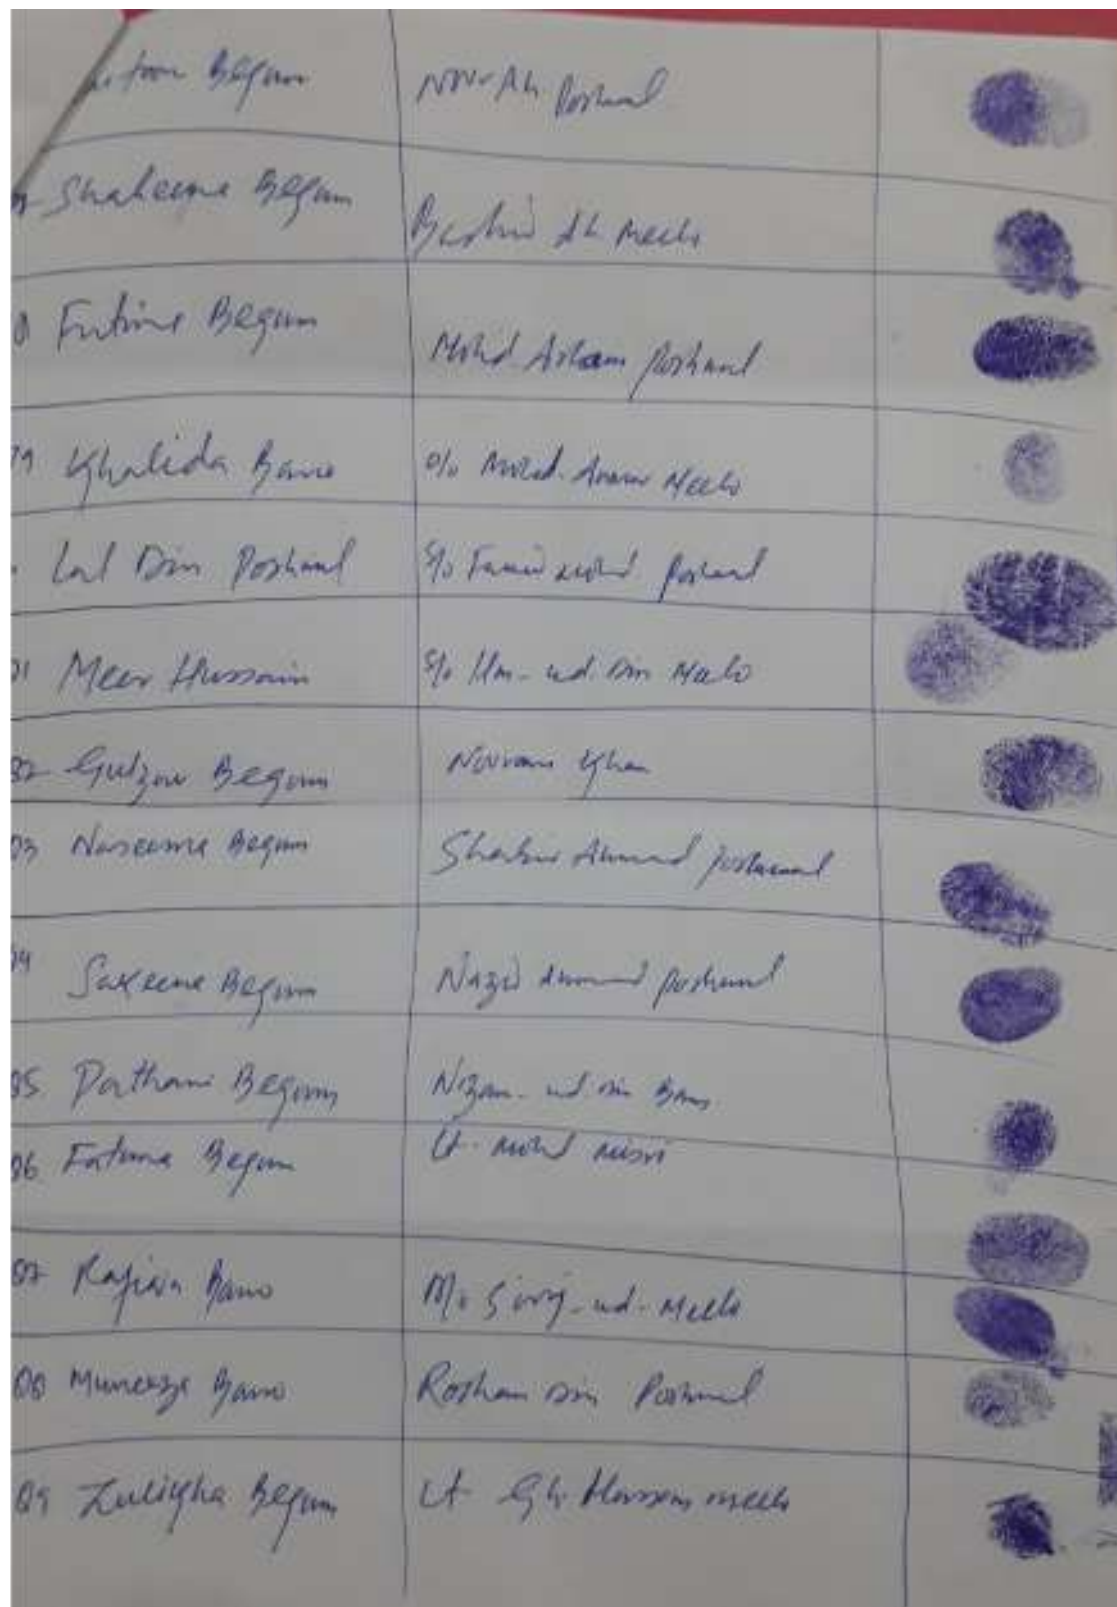 Begum Noor Ah Poshwal
Shakeena Begum Bashir Ah Meelo
Fatima Begum Mohd. Aslam Poshwal
79 Khalida Bano D/o Mohd. Anwar Meelo
Lal Din Poshwal S/o Mohd Poshwal
81 Meer Hussain S/o Ilm-ud-Din Meelo
82 Gulzar Begum Khan
83 Naseema Begum Shabir Ahmad Poshwal
84 Sakeena Begum Nazir Ahmad Poshwal
85 Pathani Begum Nizam-ud-Din
86 Fatima Begum Lt. Mohd Misri
87 Bano Siraj-ud-Meelo
88 Bano Roshan Din Poshwal
89 Zuligha Begum Lt Gh Hussan Meelo